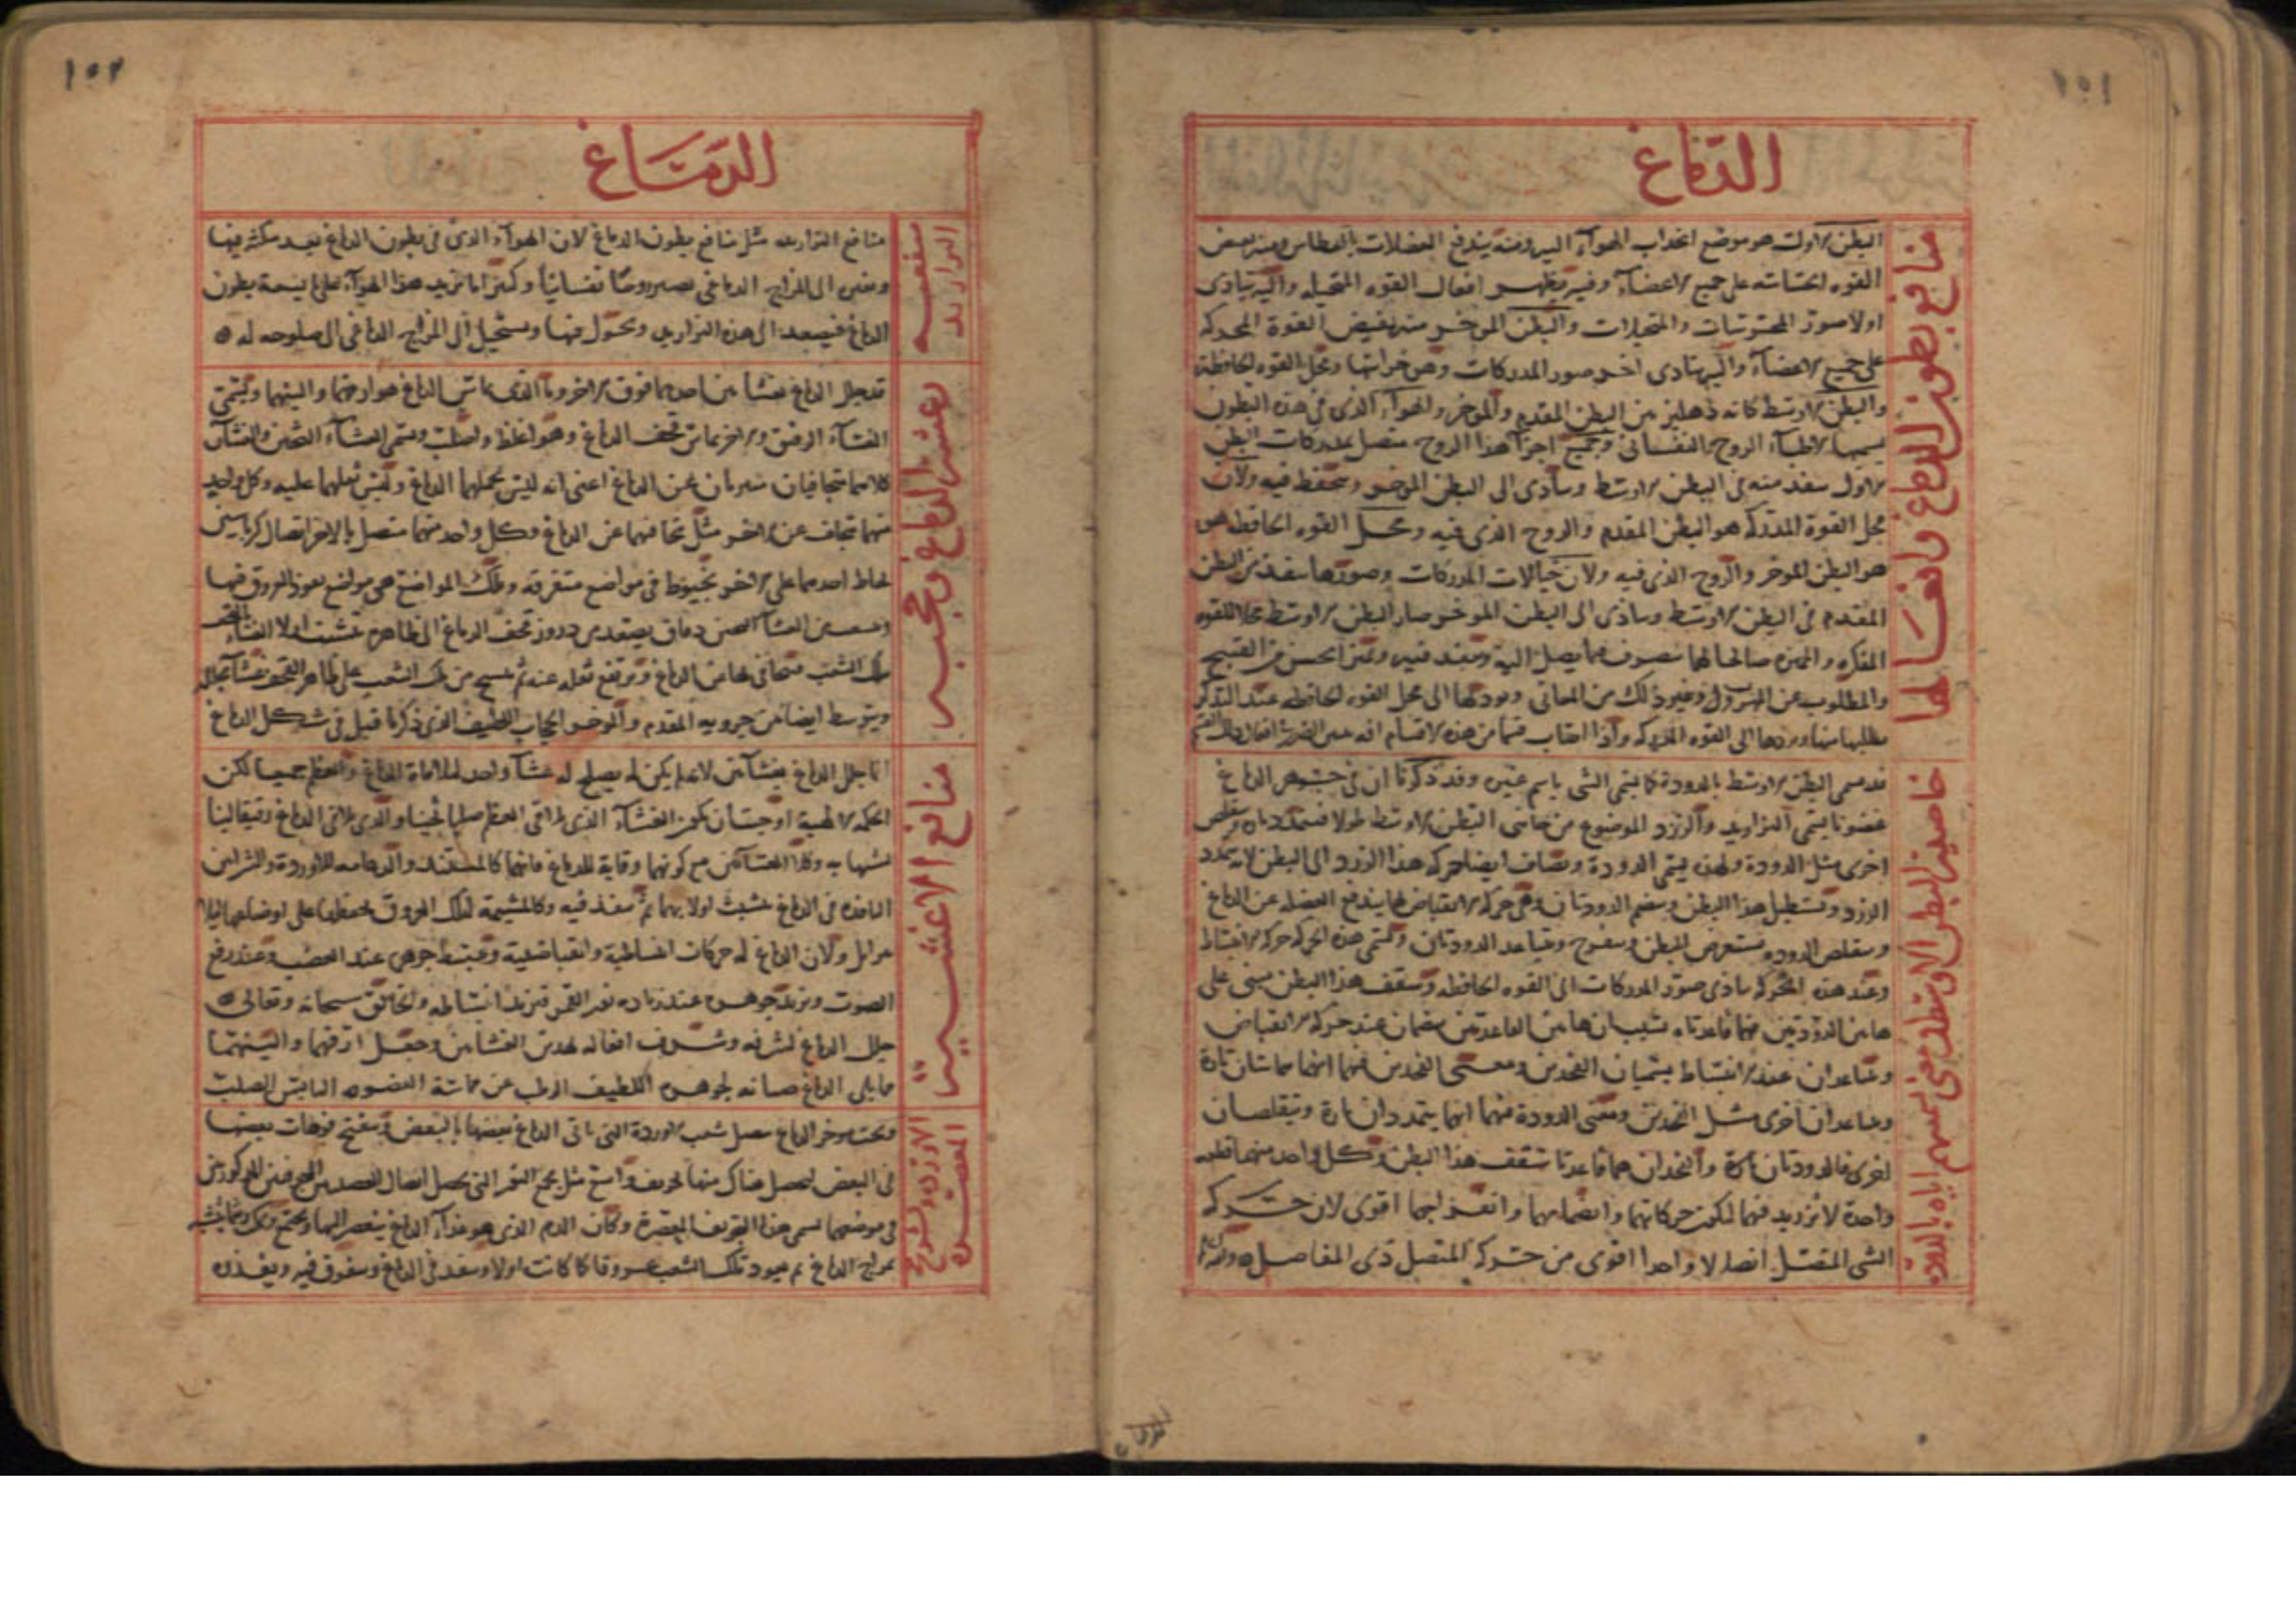 ١٥١
الدماغ
منافع بطون الدماغ وافعالها
البطن الاول هو موضع انجذاب الهوآء اليه ومنه يندفع الفضلات بالعطاس ومنه يفيض
القوه الحساسه على جميع الاعضآء وفيه يظهر افعال القوه المتخيله واليه يتادى
اولا صور المحسوسات والمتخيلات والبطن الموخر منه يفيض القوة المحركه
على جميع الاعضآء واليه يتادى اخر صور المدركات وهو خزانتها ومحل القوه الحافظة
والبطن الاوسط كانه دهليز بين البطن المقدم والموخر والهوآء الذى فى هذه البطون
يسميها الاطبآء الروح النفسانى وجميع اجزآ هذا الروح متصل مدركات البطن
الاول ينفد منه فى البطن الاوسط ويتأدى الى البطن الموخر ويتحفظ فيه ولان
محل القوة المدركه هو البطن المقدم والروح الذى فيه ومحل القوه الحافظه هو
هو البطن الموخر والروح الذى فيه ولان خيالات المدركات وصورها ينفد من البطن
المقدم فى البطن الاوسط ويتادى الى البطن الموخر صار البطن الاوسط محلا للقوه
المفكره والمميزه صالحا لهما يتصرف فيما يصل اليه وينفد فيه ويميز الحسن من القبيح
والمطلوب عن المهروب وغير ذلك من المعانى ويودعها الى محل القوه الحافظه عند التذكر
يطلبها منها ويردها الى القوه المدركه واذا اصاب قسما من هذه الاقسام افه
خاصية البطن الاوسط ومعنى تسميتهم اياه بالدودة
قد سمى البطن الاوسط بالدودة كما يسمى الشى باسم غيره وقد ذكرنا ان فى جوهر الدماغ
غضونا يسمى التزاريد والزرد الموضوع من جانبى البطن الاوسط طولا فيتمدد تارة ويتقلص
اخرى مثل الدودة ولهذا يسمى الدودة ويضاف ايضا حركه هذا الزرد الى البطن لانه يتمدد
الزرد ويستطيل هذا البطن وينضم الدودتان وهى حركه الانقباض لها يندفع الفضله عن الدماغ
ويتقلص الدوده يستعرض البطن وينفرج ويتباعد الدودتان وتسمى هذه الحركه حركه الانبساط
وعند هذه الحركه يتادى صور المدركات الى القوه الحافظه وسقف هذا البطن مبنى على
هاتين الدودتين فهما قاعدتاه يشبهان هاتين القاعدتين ينضمان عند حركه الانقباض
ويتباعدان عند الانبساط يسميان الفخدين ومعنى الفخدين فيهما انهما يتماسان تارة
ويتباعدان اخرى مثل الفخدين ومعنى الدودة فيهما انهما يتمددان تارة ويتقلصان
اخرى فالدودتان تارة والفخدان هما قاعدتا سقف هذا البطن وكل واحد منهما قطعه
واحدة لا تزريد فيهما لتكون حركاتهما وانضمامهما وانفراجهما اقوى لان حركه
الشى المتصل اتصالا واحدا اقوى من حركه المتصل ذى المفاصل
١٥٢
الدماغ
منفعه التزاريد
منافع التزاريد مثل منافع بطون الدماغ لان الهوآء الذى فى بطون الدماغ بعد مكثه فيها
وتغيره الى المزاج الدماغى يصير روحا نفسانيا وكثيرا ما تزيد هذا الهوآء على ما يسعه بطون
الدماغ فيصعد الى هذه التزاريد ويتحول فيها ويستحيل الى المزاج الدماغى الى صلوحه له
اغشية الدماغ وحجبه
قد جلل الدماغ بغشائين احدهما فوق الاخر وما الذى يماس الدماغ هو ارقهما والينهما ويسمى
الغشآء الرقيق والاخر يماس قحف الدماغ وهو اغلظ واصلب ويسمى الغشآء الثخين والغشآن
كلاهما متجافيان متبريان عن الدماغ اعنى انه ليس يحملهما الدماغ وليس ثقلهما عليه وكل واحد
منهما متجاف عن الاخر مثل تجافيهما عن الدماغ وكل واحد منهما متصل بالاخر اتصال كرباسين
يخاط احدهما على الاخر بخيوط فى مواضع متفرقه وتلك المواضع هى مواضع نفوذ العروق فيها
تلك الشعب متجافى لها عن الدماغ ويرتفع ثقله عنه ثم ينسج من تلك الشعب على ظاهر القحف غشآ مجللا
ويتوسط ايضا بين جزويه المقدم والموخر الحجاب اللطيف الذى ذكرنا قبل فى شكل الدماغ
منافع الاغشية
انما جلل الدماغ بغشائين لانه لم يكن له يصلح له غشآ واحد لملاقاة الدماغ والعظم جميعا لكن
الحكمه الالهية اوجبت ان يكون الغشآء الذى يلاقى العظم صلبا ثخينا والذى يلاقى الدماغ رقيقا لينا
شبيها به وكلا الغشائين مع كونهما وقاية للدماغ فانهما كالمستند والدعامه للاوردة والشرايين
النافذه فى الدماغ يتشبث اولا بهما ثم ينفذ فيه وكالمشيمة لتلك العروق يحفظها على اوضاعها ليلا
يتزايل ولان الدماغ له حركات انبساطية وانقباضية وينبسط جوهره عند الغضب وعند رفع
الصوت ويزيد جوهره عند زياده نور القمر فيزيد انبساطه والخالق سبحانه وتعالى
جلل الدماغ لشرفه وشرف افعاله بهذين الغشائين وجعل ارقهما والينهما
مما يلى الدماغ صيانه لجوهره اللطيف الرطب عن مماسة العضو اليابس الصلب
الاوردة والشورج المعصره
وتحت موخر الدماغ يتصل شعب الاوردة التى تاتى الدماغ بعضها بالبعض وينفتح فوهات بعضها
فى البعض ليحصل هناك منها تجويف واسع مثل مجمع النهر التى يحصل اتصال
فى موضعهما تسمى هذا التجويف المعصرة وكان الدم الذى هو غذآء الدماغ ينعصر اليها ويجتمع
بمزاج الدماغ ثم يعود تلك الشعب عروقا كما كانت اولا وينفد فى الدماغ ويتفرق فيه ويغذوه